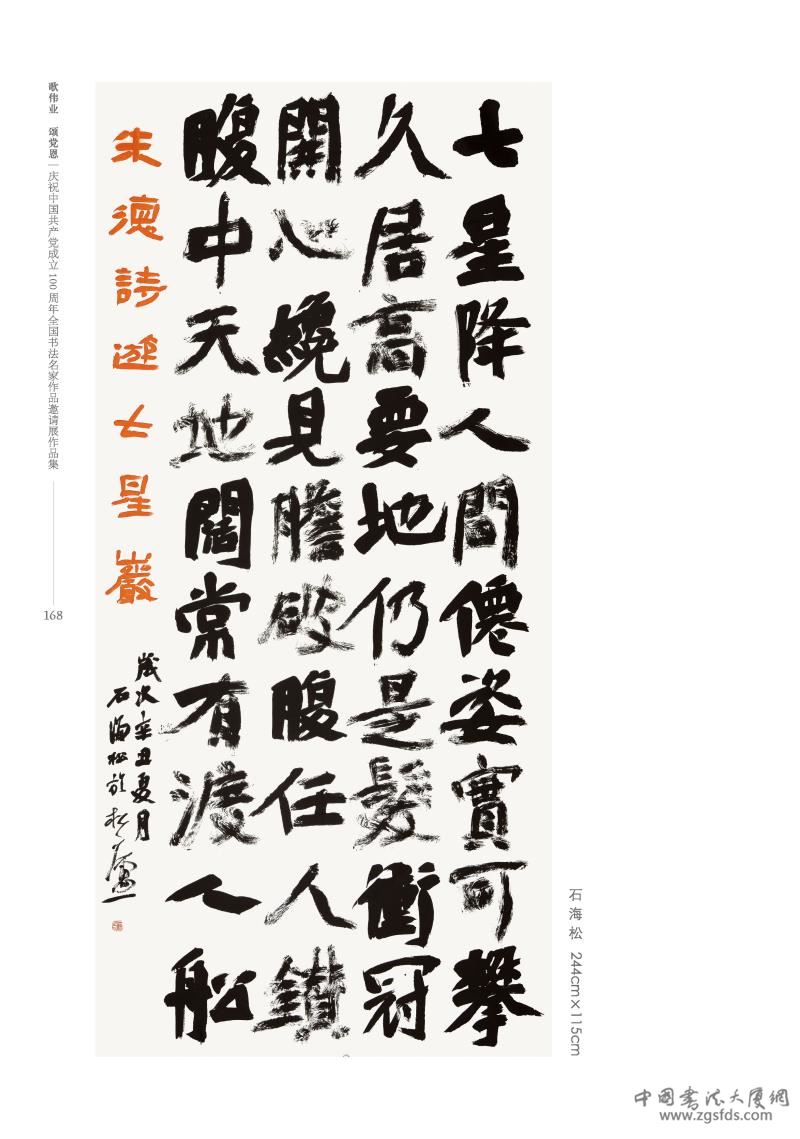 七星降人間僊姿實可攀
久居高要地仍是髮衝冠
開心纔見膽破腹任人鑽
腹中天地闊常有渡人船
朱德詩遊七星巖
歲次辛丑夏月
石海松於松廬
歌伟业 颂党恩|庆祝中国共产党成立100周年全国书法名家作品邀请展作品集
168
石海松 244cm×115cm
中国书法大厦網
www.zgsfds.com